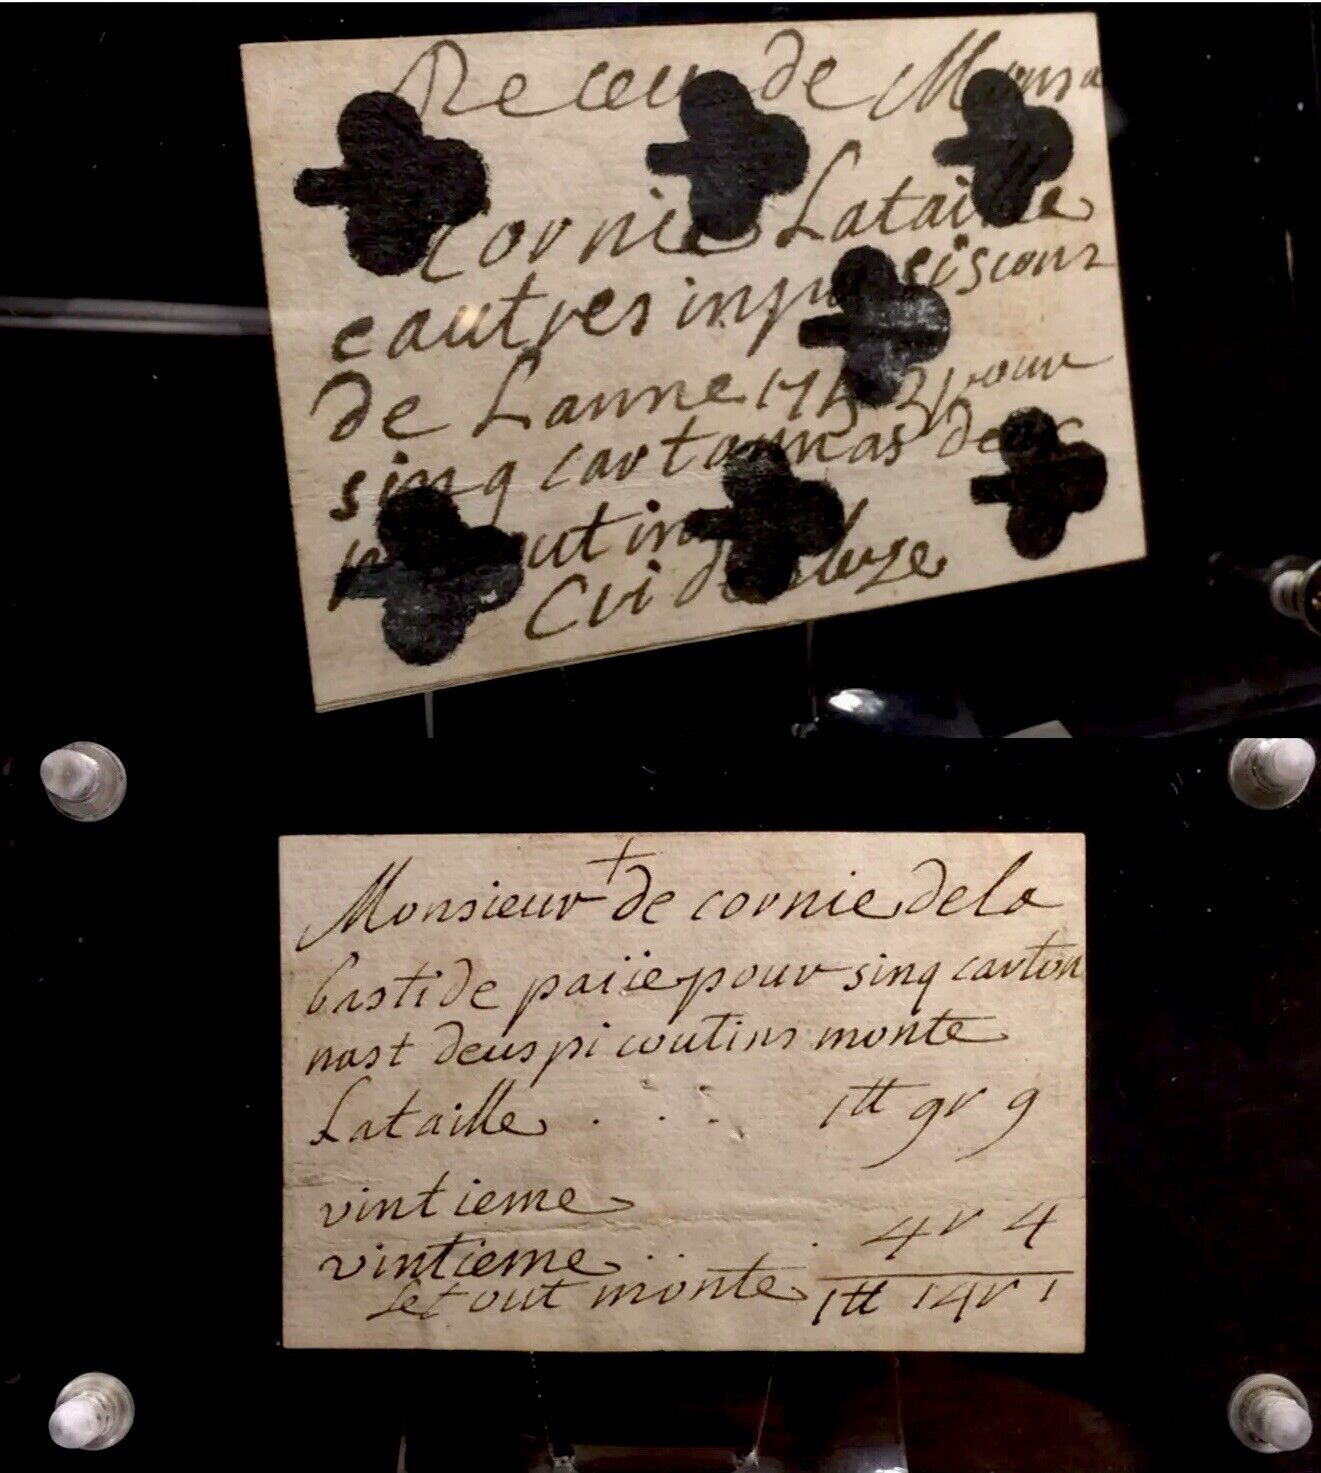 Receu de
cornie Lataille
eautres inpo siscons
de Lanne
sinq cartannas de

Cvi de
Monsieur de cornie dela
bastide païie pour sinq carton
nast deus pi coutins monte
Lataille . . . 1tt 9r 9
vintieme
vintieme . . . 4r 4
Letout monte 1tt 14r 1